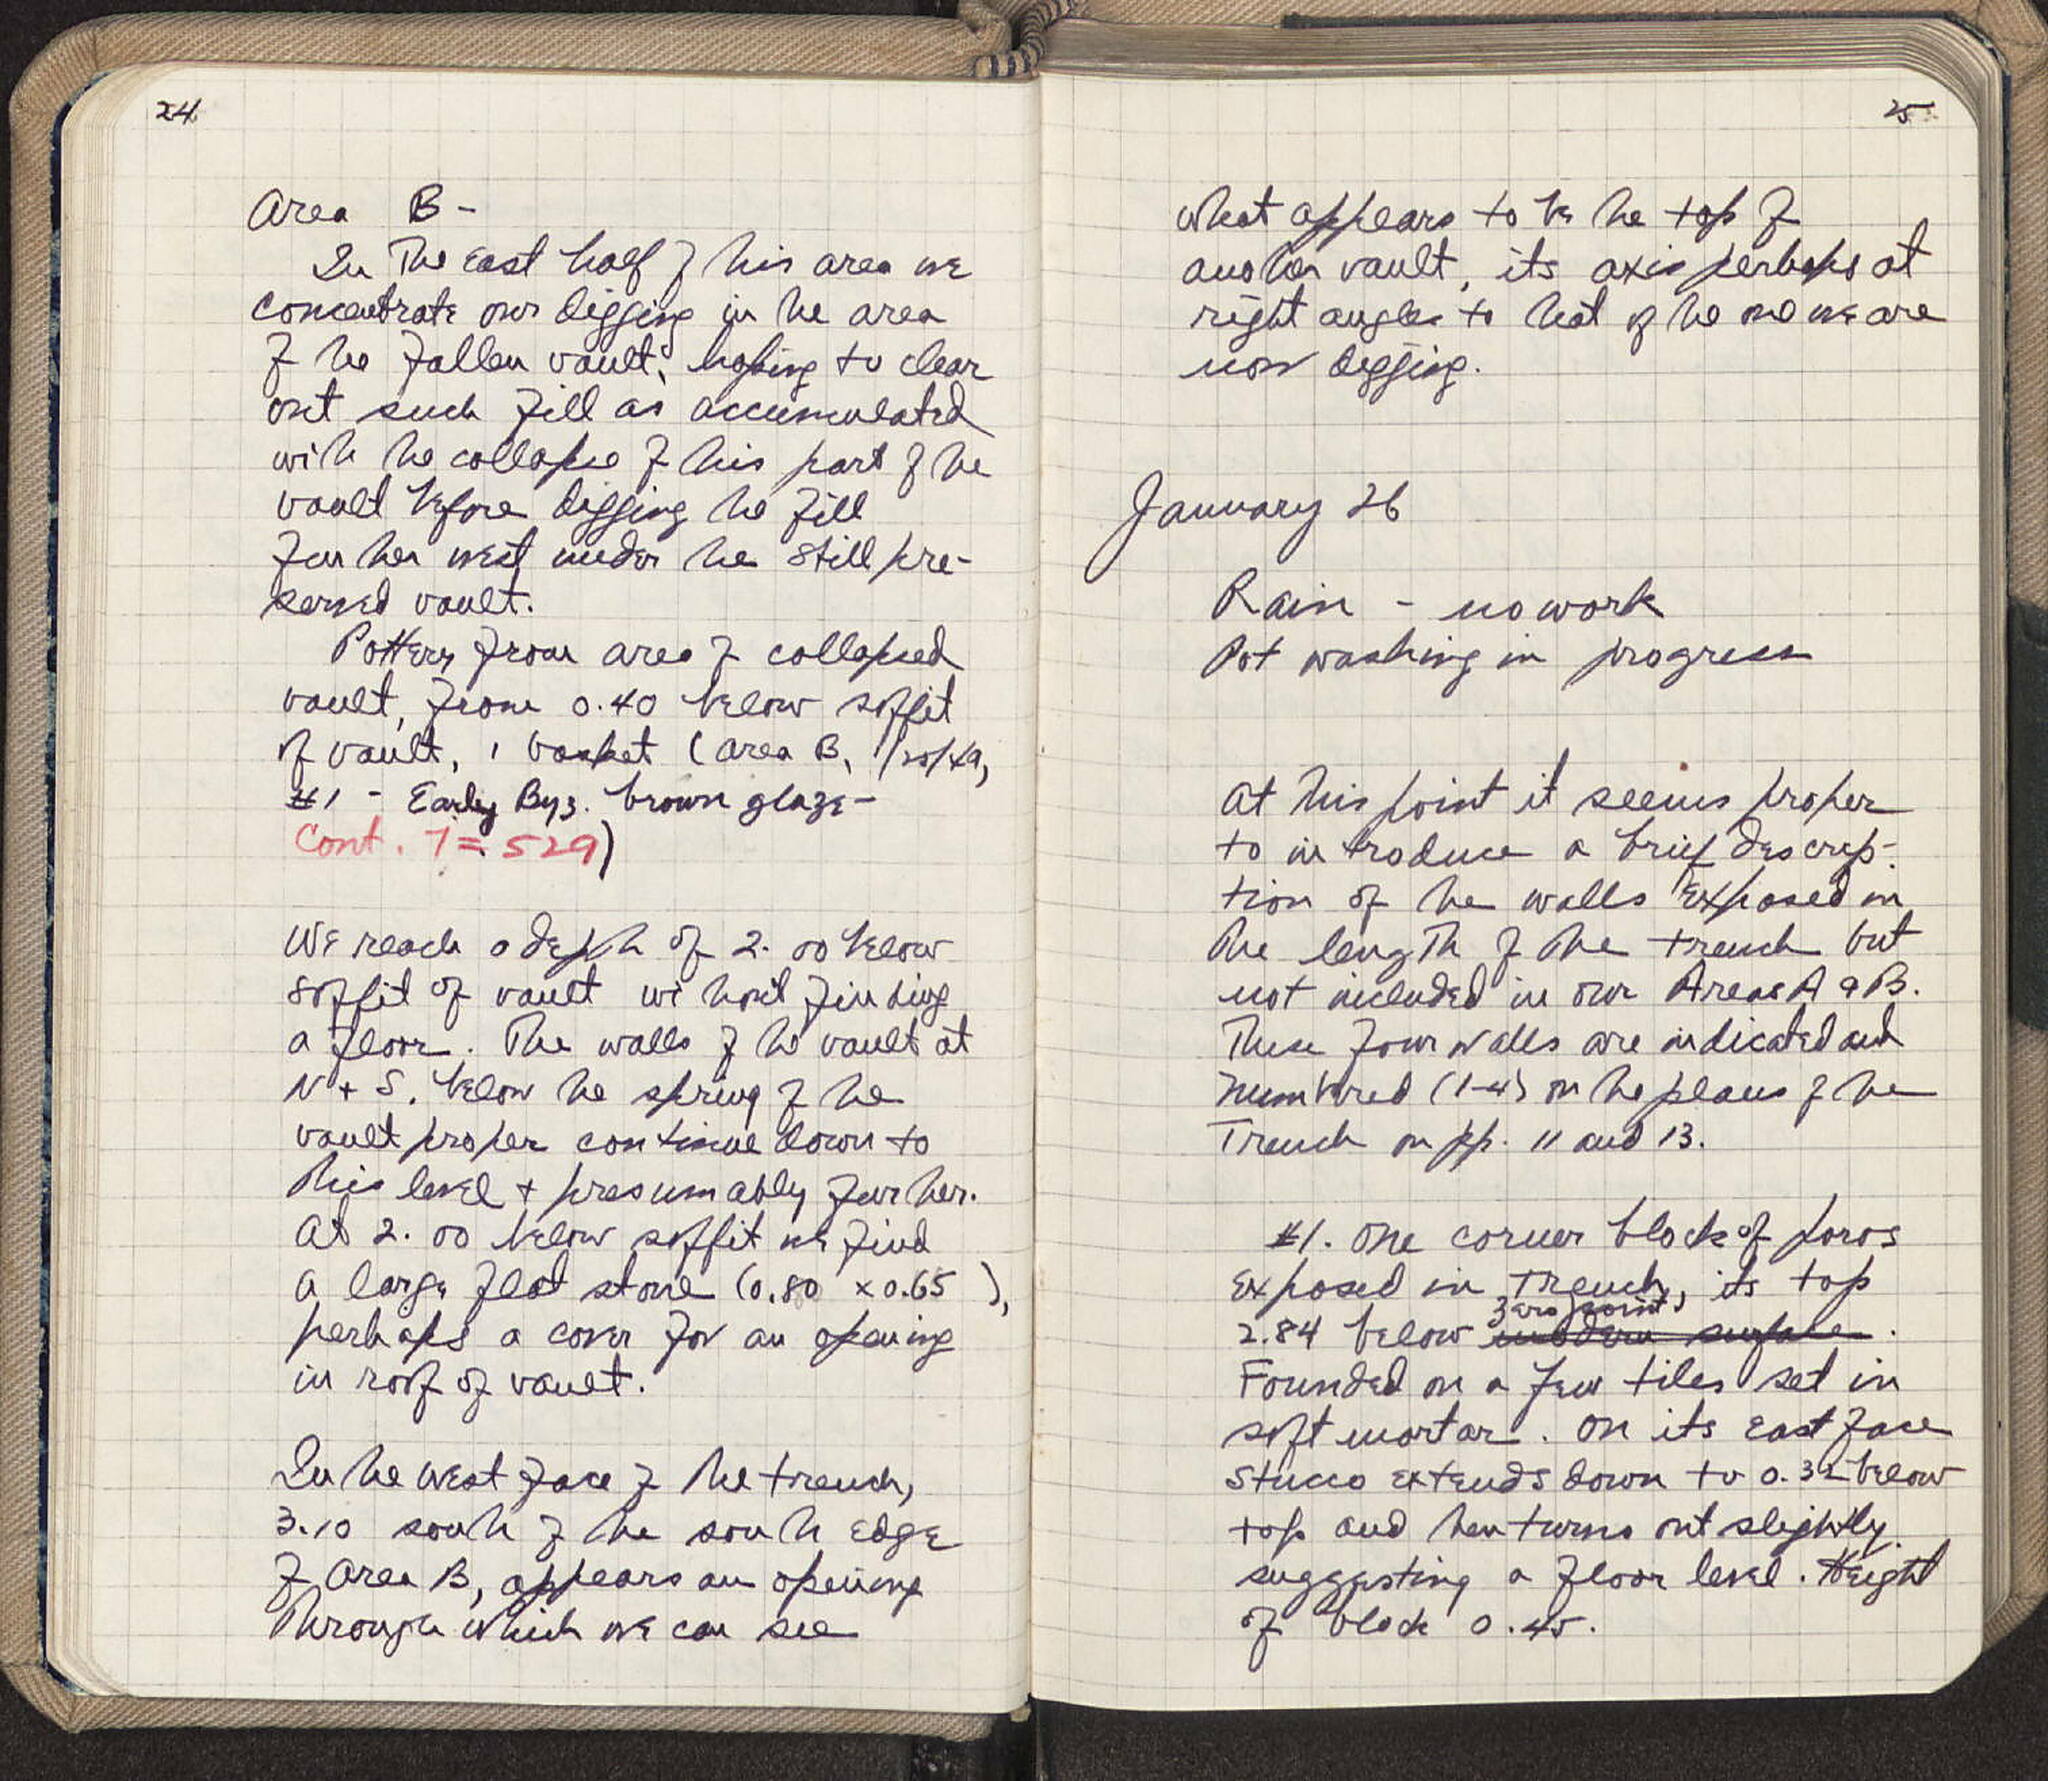 24
Area B -
In The East half of this area we
concentrate our digging in the area
of the fallen vault, hoping to clear
out such fill as accumulated
with the collapse of this part of the
vault before digging the fill
further west under the still pre-
served vault.
Pottery from area of collapsed
vault, from 0.40 below soffit
of vault, 1 basket (Area B, 1/25/49,
#1 - Early Byz. brown glaze -
Cont. 7 = 529)
We reach a depth of 2.00 below
soffit of vault without finding
a floor. The walls of the vault at
N + S, below the spring of the
vault proper continue down to
this level + presumably further.
At 2.00 below soffit we find
a large flat stone (0.80 x 0.65 ),
perhaps a cover for an opening
in roof of vault.
In the west face of the trench,
3.10 south of the south edge
of Area B, appears an opening
through which we can see
25
what appears to be the top of
another vault, its axis perhaps at
right angles to that of the one we are
now digging.
January 26
Rain - no work
Pot washing in progress
At this point it seems proper
to introduce a brief descrip-
tion of the walls exposed in
the length of the trench but
not included in our Areas A & B.
These four walls are indicated and
numbered (1-4) on the plans of the
Trench on pp. 11 and 13.
#1. One corner block of poros
exposed in trench, its top
zero point
2.84 below modern surface.
Founded on a few tiles set in
soft mortar. On its east face
stucco extends down to 0.32 below
top and then turns out slightly
suggesting a floor level. Height
of block 0.45.